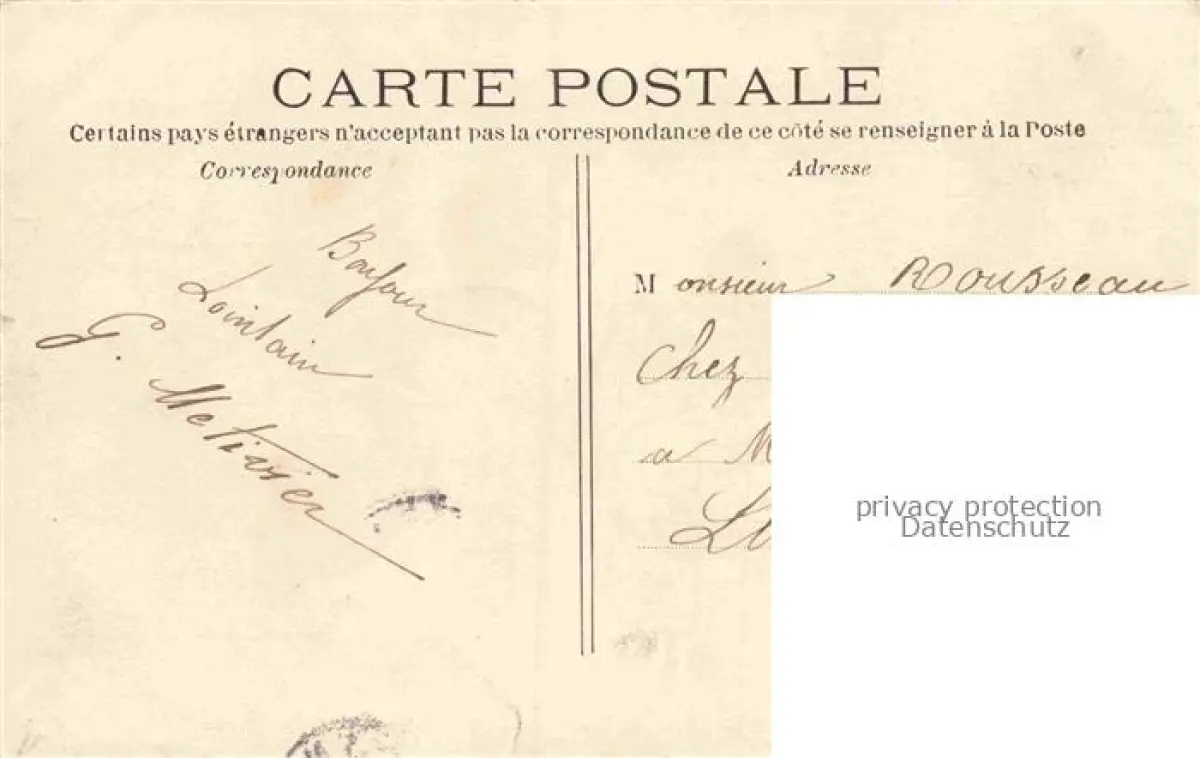 CARTE POSTALE
Certains pays étrangers n'acceptant pas la correspondance de ce côté se renseigner à la Poste
Correspondance
Bonjour
Lointain
G. Metivier
Adresse
Monsieur Rousseau
Chez
a M
privacy protection
Datenschutz